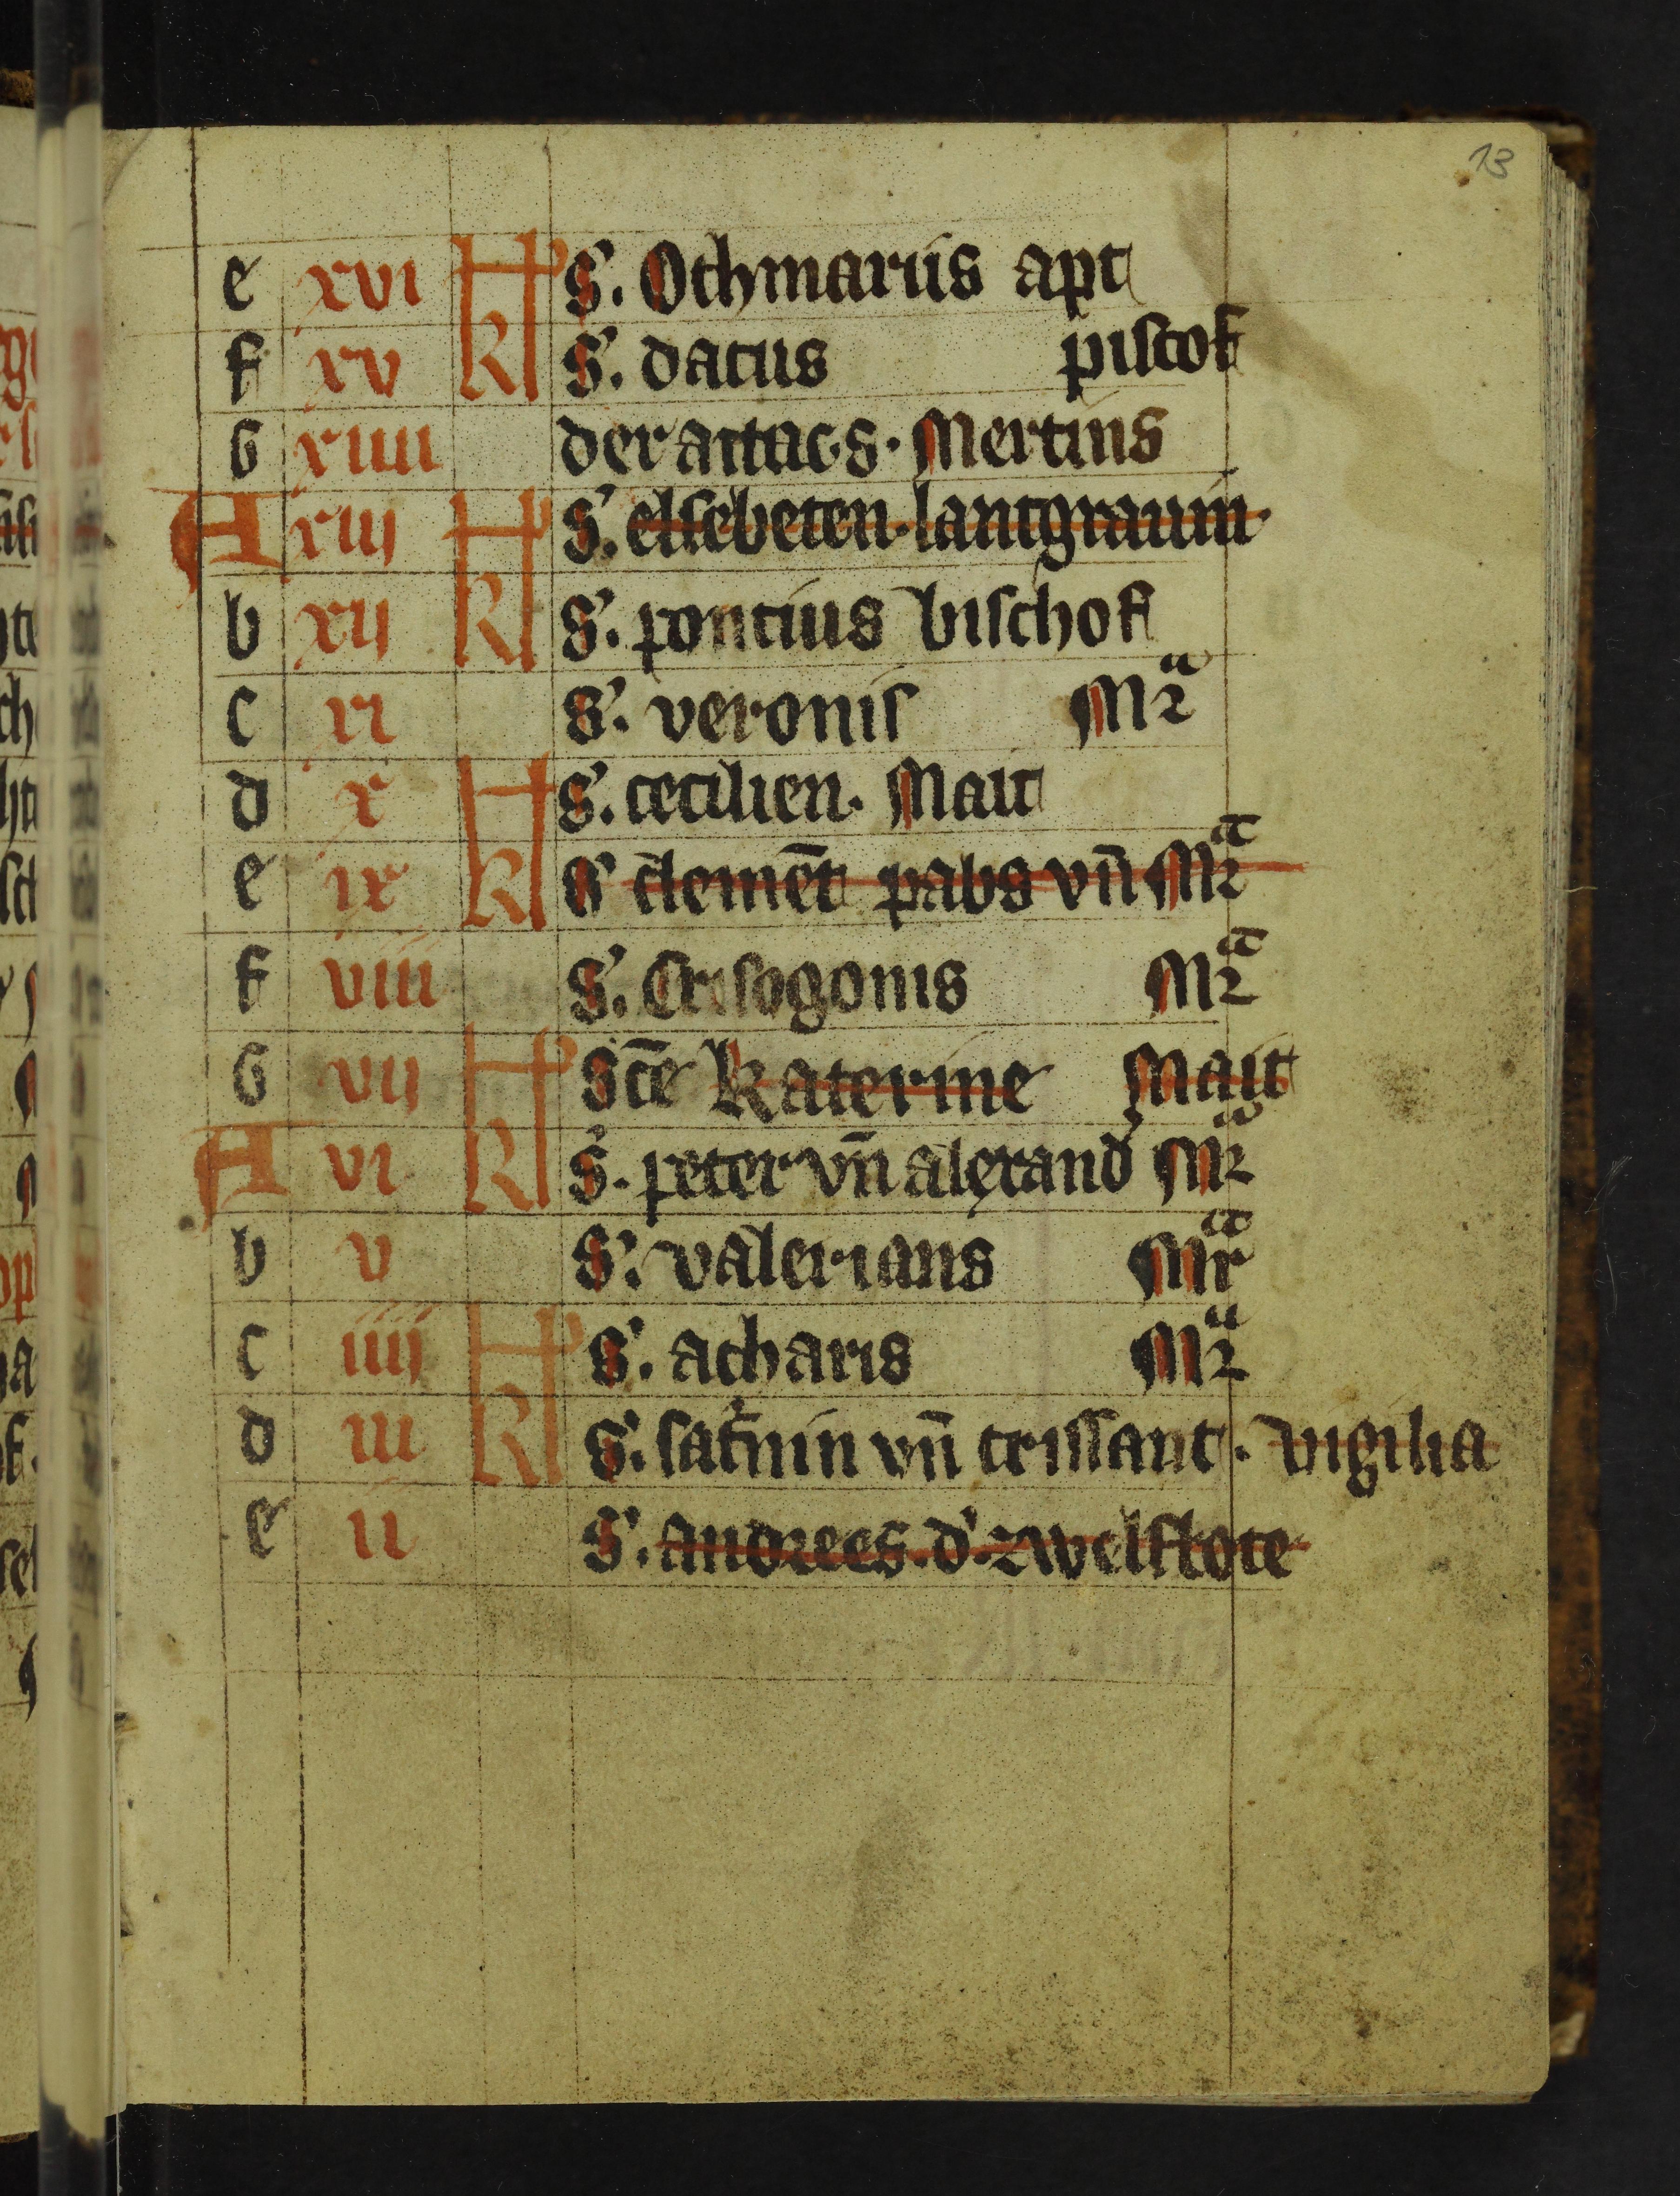 13
e xvi kl S. Othmarus apt
f xv kl S. datus piscof
G xiiii der achtac. s. Mertins
A xiij kl S. elsebeten. lantgrauin.
b xij kl S. pontius bischof
c xi S. veronis Mr̄
d x kl S. cecilien. Mait
e ix kl S clemēt pabs vn̄ Mr̄
f viii S. Crisogonis Mr̄
G vij kl Sc̄e katerine Mait
A vi kl S. peter vn̄ alexand' Mr̄
b v S. valerians Mr̄
c iiij kl S. acharis Mr̄
d iii kl S. sat'nin vn̄ crissant. vigilia
e ii S. andrees. d'. zwelflote